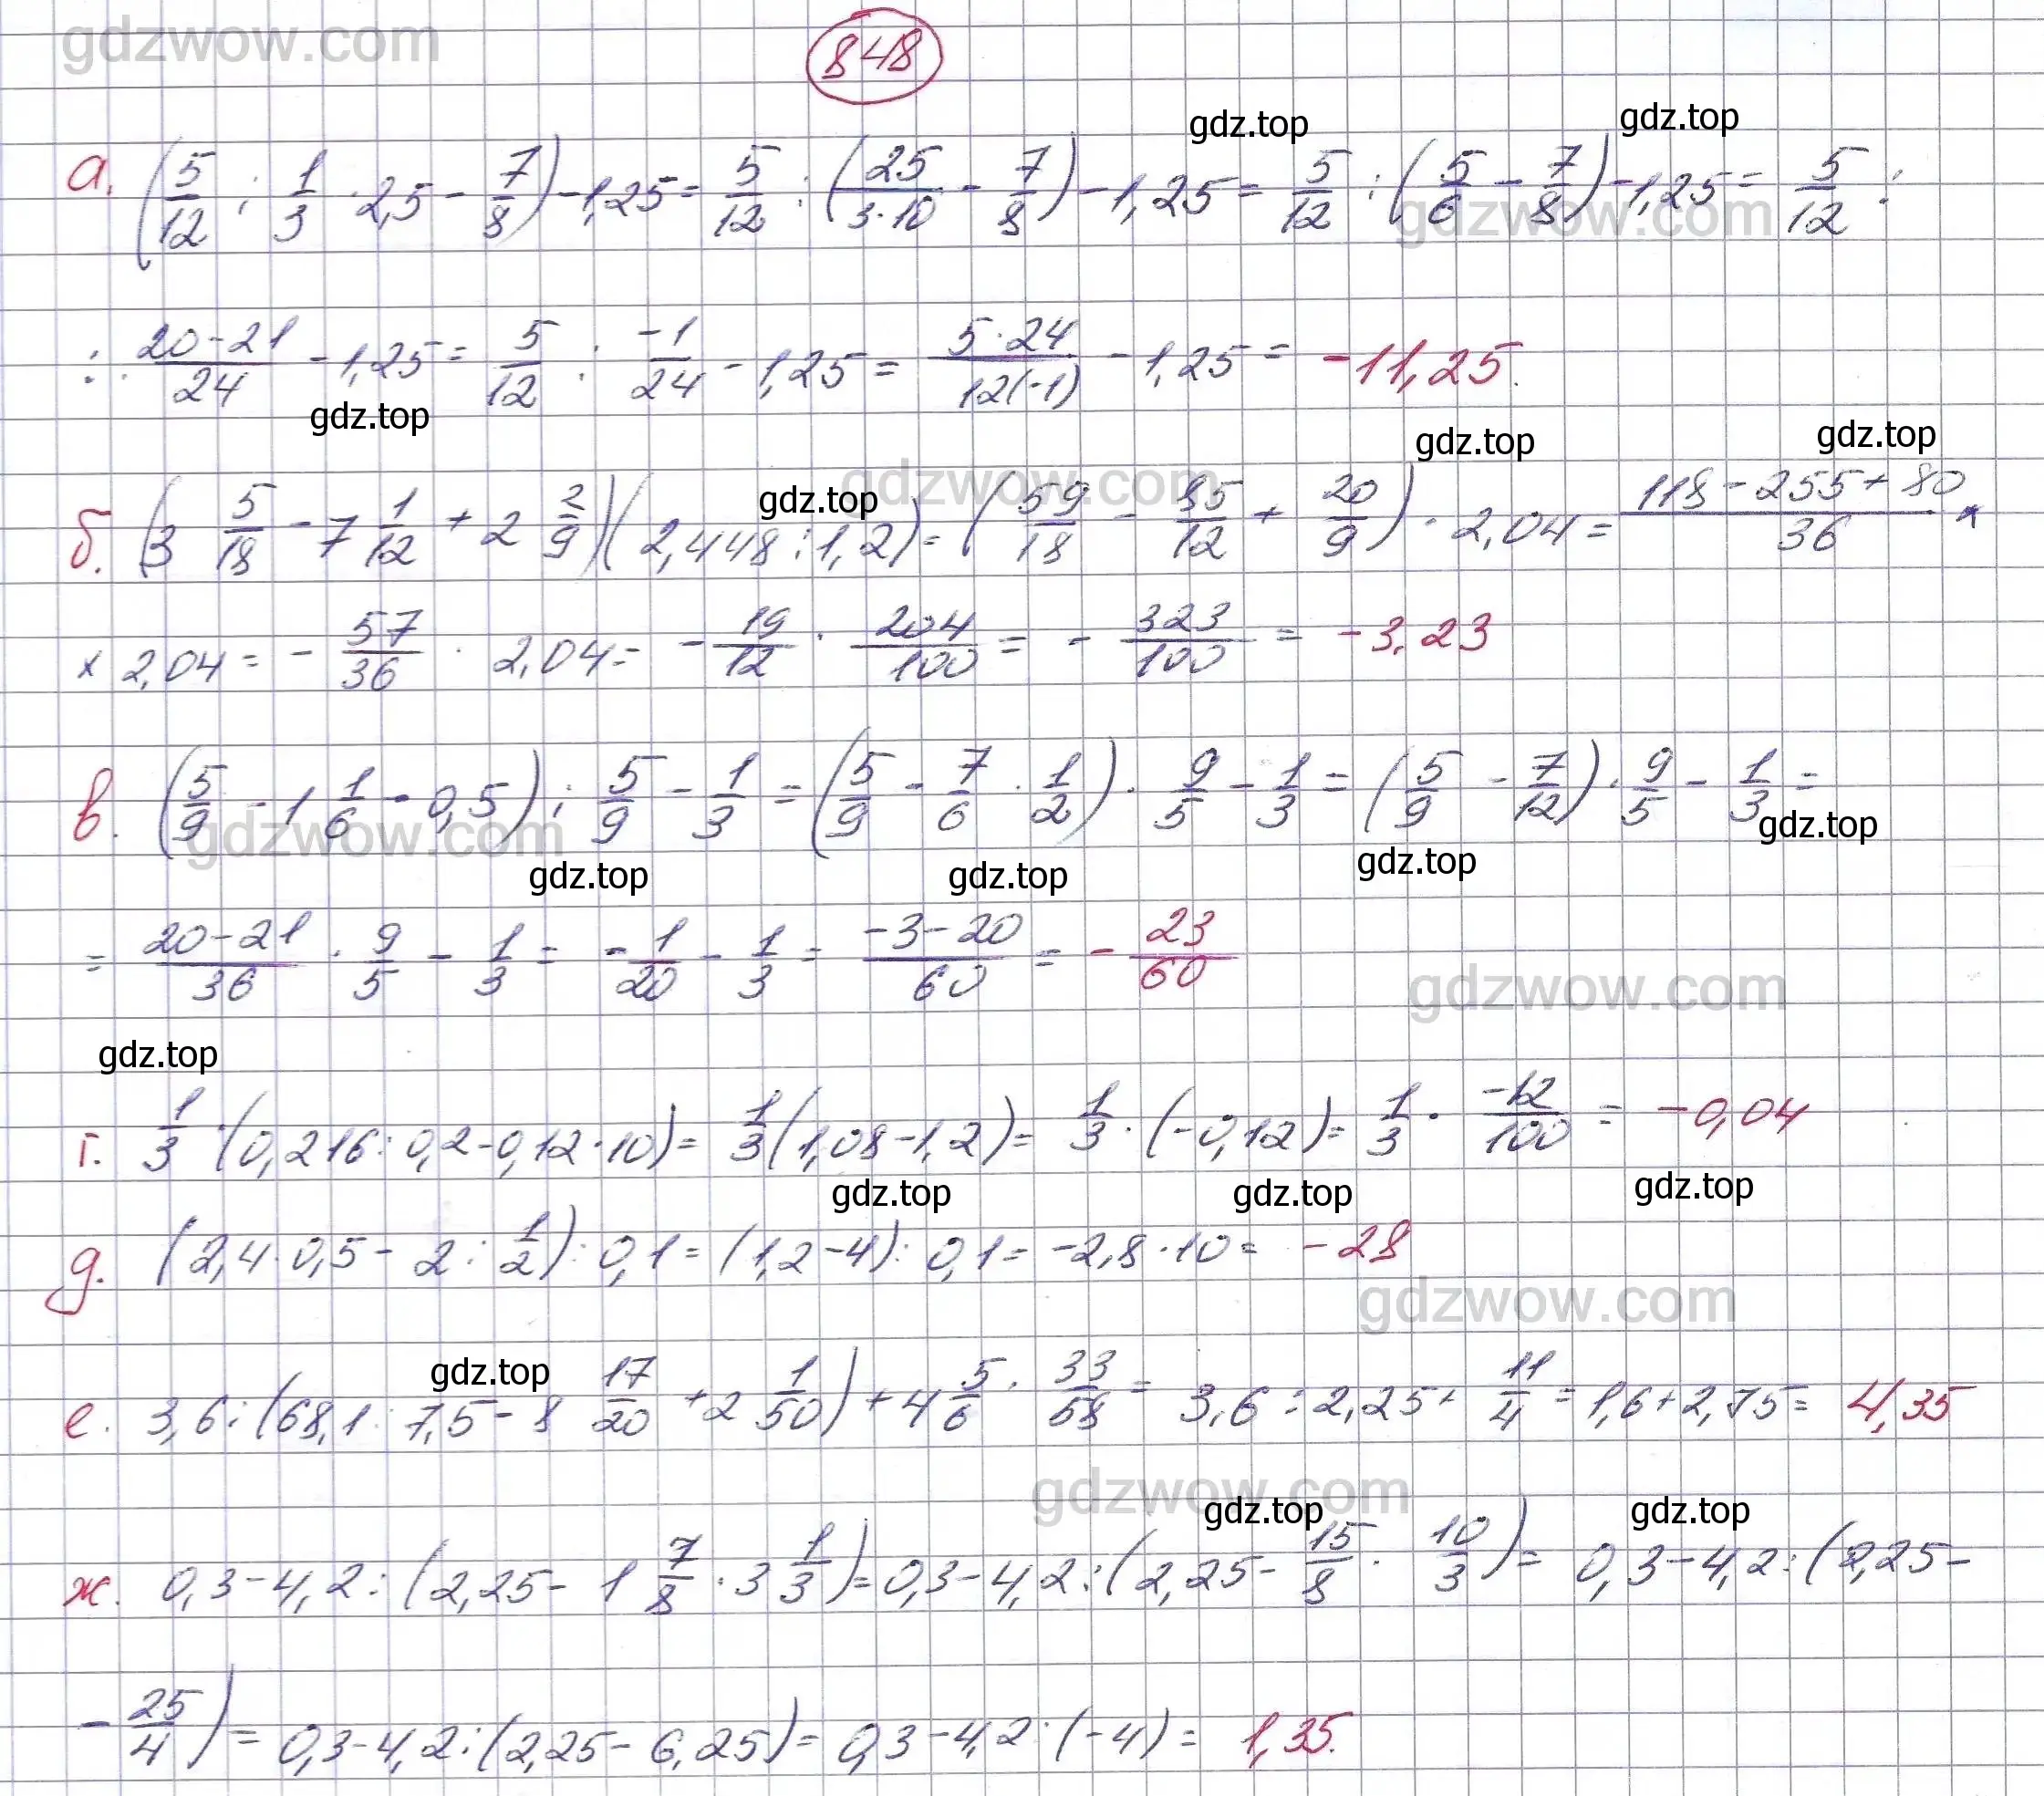 gdzwow.com
848
gdz.top gdz.top
а. (5/12 : 1/3 · 2,5 - 7/8) - 1,25 = 5/12 : (25/3·10 - 7/8) - 1,25 = 5/12 : (5/6 - 7/8) - 1,25 = 5/12 :
gdzwow.com
: 20-21/24 - 1,25 = 5/12 : -1/24 - 1,25 = 5·24/12(-1) - 1,25 = -11,25.
gdz.top gdz.top gdz.top
gdzwow.com gdz.top
б. (3 5/18 - 7 1/12 + 2 2/9)(2,448 : 1,2) = (59/18 - 85/12 + 20/9) · 2,04 = 118-255+80/36 ×
× 2,04 = - 57/36 · 2,04 = - 19/12 · 204/100 = - 323/100 = -3,23
в. (5/9 - 1 1/6 · 0,5) : 5/9 - 1/3 = (5/9 - 7/6 · 1/2) · 9/5 - 1/3 = (5/9 - 7/12) · 9/5 - 1/3 =
gdzwow.com gdz.top
gdz.top gdz.top gdz.top
= 20-21/36 · 9/5 - 1/3 = - 1/20 - 1/3 = -3-20/60 = - 23/60
gdzwow.com
gdz.top
г. 1/3 · (0,216 : 0,2 - 0,12 · 10) = 1/3 (1,08 - 1,2) = 1/3 · (-0,12) = 1/3 · -12/100 = -0,04
gdz.top gdz.top gdz.top
д. (2,4 · 0,5 - 2 : 1/2) : 0,1 = (1,2 - 4) : 0,1 = -2,8 · 10 = -28
gdzwow.com
gdz.top
е. 3,6 : (68,1 : 7,5 - 8 17/20 + 2 1/50) + 4 5/6 · 33/58 = 3,6 : 2,25 + 11/4 = 1,6 + 2,75 = 4,35
gdzwow.com
gdz.top gdz.top
ж. 0,3 - 4,2 : (2,25 - 1 7/8 · 3 1/3) = 0,3 - 4,2 : (2,25 - 15/8 · 10/3) = 0,3 - 4,2 : (2,25 -
- 25/4) = 0,3 - 4,2 : (2,25 - 6,25) = 0,3 - 4,2 : (-4) = 1,35.